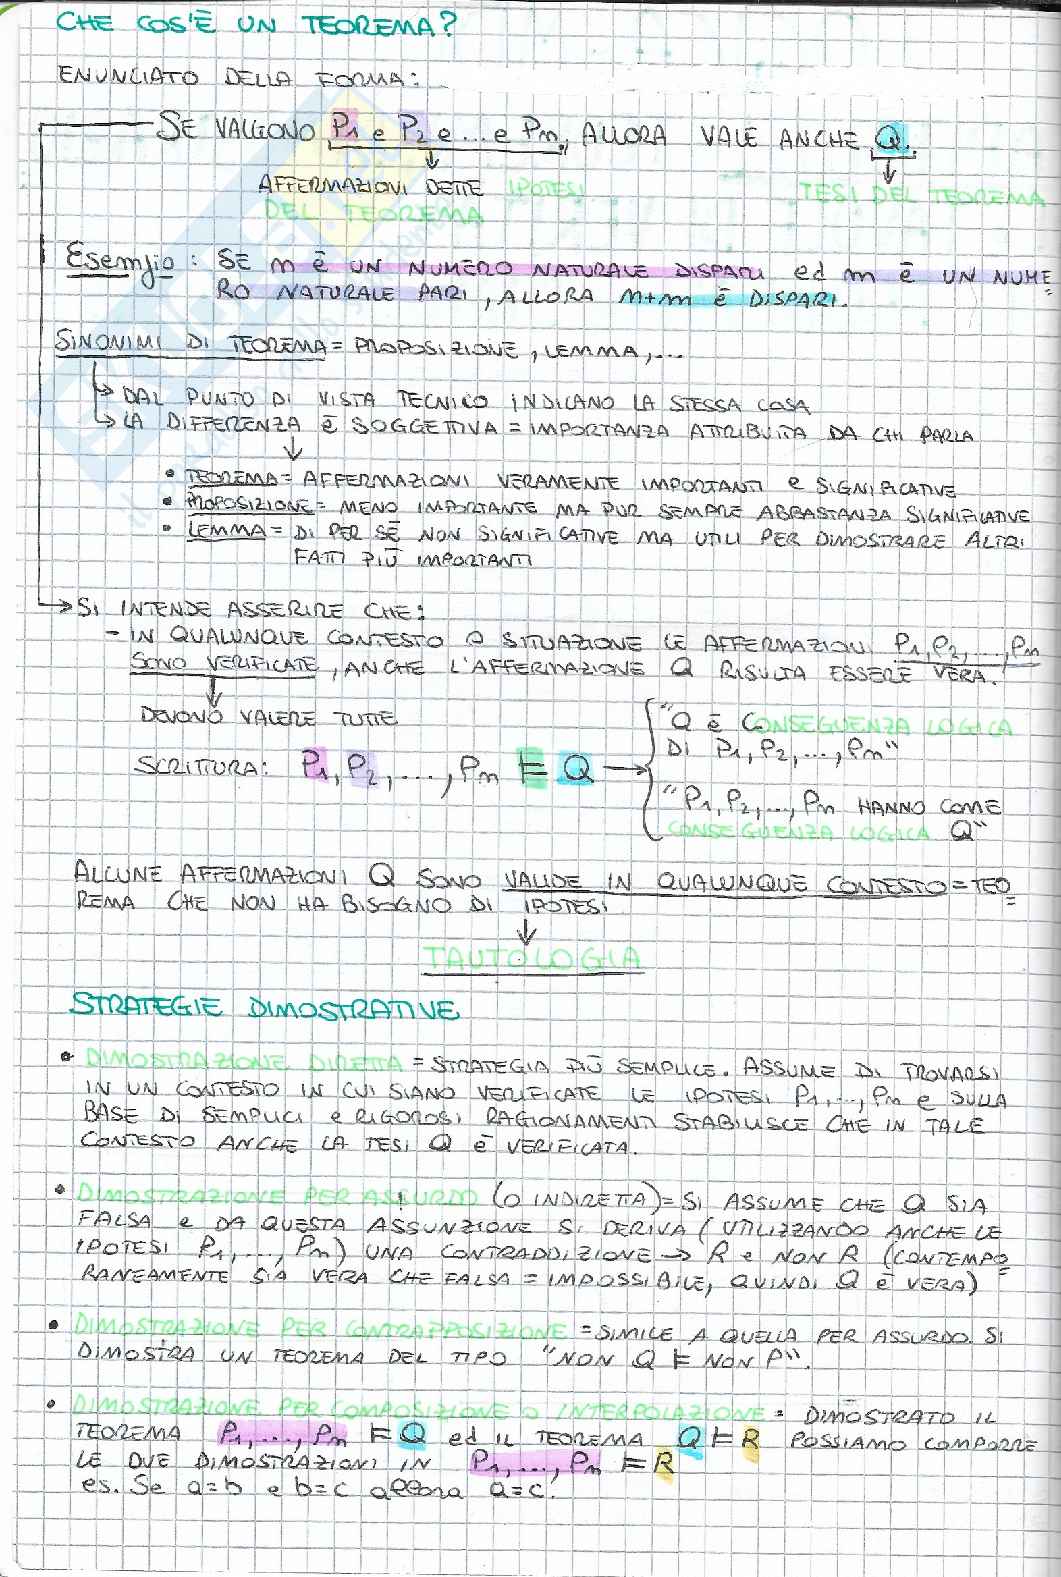 CHE COS'È UN TEOREMA?
ENUNCIATO DELLA FORMA:
SE VALGONO P1 e P2 e ... e Pn, ALLORA VALE ANCHE Q.
AFFERMAZIONI DETTE IPOTESI
DEL TEOREMA
TESI DEL TEOREMA
Esempio: SE m È UN NUMERO NATURALE DISPARI ed m È UN NUME
RO NATURALE PARI, ALLORA m+m È DISPARI.
SINONIMI DI TEOREMA = PROPOSIZIONE, LEMMA, ...
DAL PUNTO DI VISTA TECNICO INDICANO LA STESSA COSA
LA DIFFERENZA È SOGGETTIVA = IMPORTANZA ATTRIBUITA DA CHI PARLA
• TEOREMA = AFFERMAZIONI VERAMENTE IMPORTANTI e SIGNIFICATIVE
• PROPOSIZIONE = MENO IMPORTANTE MA PUR SEMPRE ABBASTANZA SIGNIFICATIVE
• LEMMA = DI PER SÈ NON SIGNIFICATIVE MA UTILI PER DIMOSTRARE ALTRI
FATTI PIÙ IMPORTANTI
→ SI INTENDE ASSERIRE CHE:
- IN QUALUNQUE CONTESTO O SITUAZIONE LE AFFERMAZIONI P1, P2, ..., Pn
SONO VERIFICATE, ANCHE L'AFFERMAZIONE Q RISULTA ESSERE VERA.
DEVONO VALERE TUTTE
SCRITTURA: P1, P2, ..., Pn ⊨ Q →
"Q È CONSEGUENZA LOGICA
DI P1, P2, ..., Pn"
"P1, P2, ..., Pn HANNO COME
CONSEGUENZA LOGICA Q"
ALCUNE AFFERMAZIONI Q SONO VALIDE IN QUALUNQUE CONTESTO = TEO
REMA CHE NON HA BISOGNO DI IPOTESI
TAUTOLOGIA
STRATEGIE DIMOSTRATIVE
• DIMOSTRAZIONE DIRETTA = STRATEGIA PIÙ SEMPLICE. ASSUME DI TROVARSI
IN UN CONTESTO IN CUI SIANO VERIFICATE LE IPOTESI P1, ..., Pn e SULLA
BASE DI SEMPLICI e RIGOROSI RAGIONAMENTI STABILISCE CHE IN TALE
CONTESTO ANCHE LA TESI Q È VERIFICATA.
• DIMOSTRAZIONE PER ASSURDO (O INDIRETTA) = SI ASSUME CHE Q SIA
FALSA e DA QUESTA ASSUNZIONE SI DERIVA (UTILIZZANDO ANCHE LE
IPOTESI P1, ..., Pn) UNA CONTRADDIZIONE → R e NON R (CONTEMPO
RANEAMENTE SIA VERA CHE FALSA = IMPOSSIBILE, QUINDI Q È VERA)
• DIMOSTRAZIONE PER CONTRAPPOSIZIONE = SIMILE A QUELLA PER ASSURDO. SI
DIMOSTRA UN TEOREMA DEL TIPO "NON Q ⊨ NON P".
• DIMOSTRAZIONE PER COMPOSIZIONE O INTERPOLAZIONE = DIMOSTRATO IL
TEOREMA P1, ..., Pn ⊨ Q ed IL TEOREMA Q ⊨ R POSSIAMO COMPORRE
LE DUE DIMOSTRAZIONI IN P1, ..., Pn ⊨ R
es. Se a=b e b=c allora a=c.